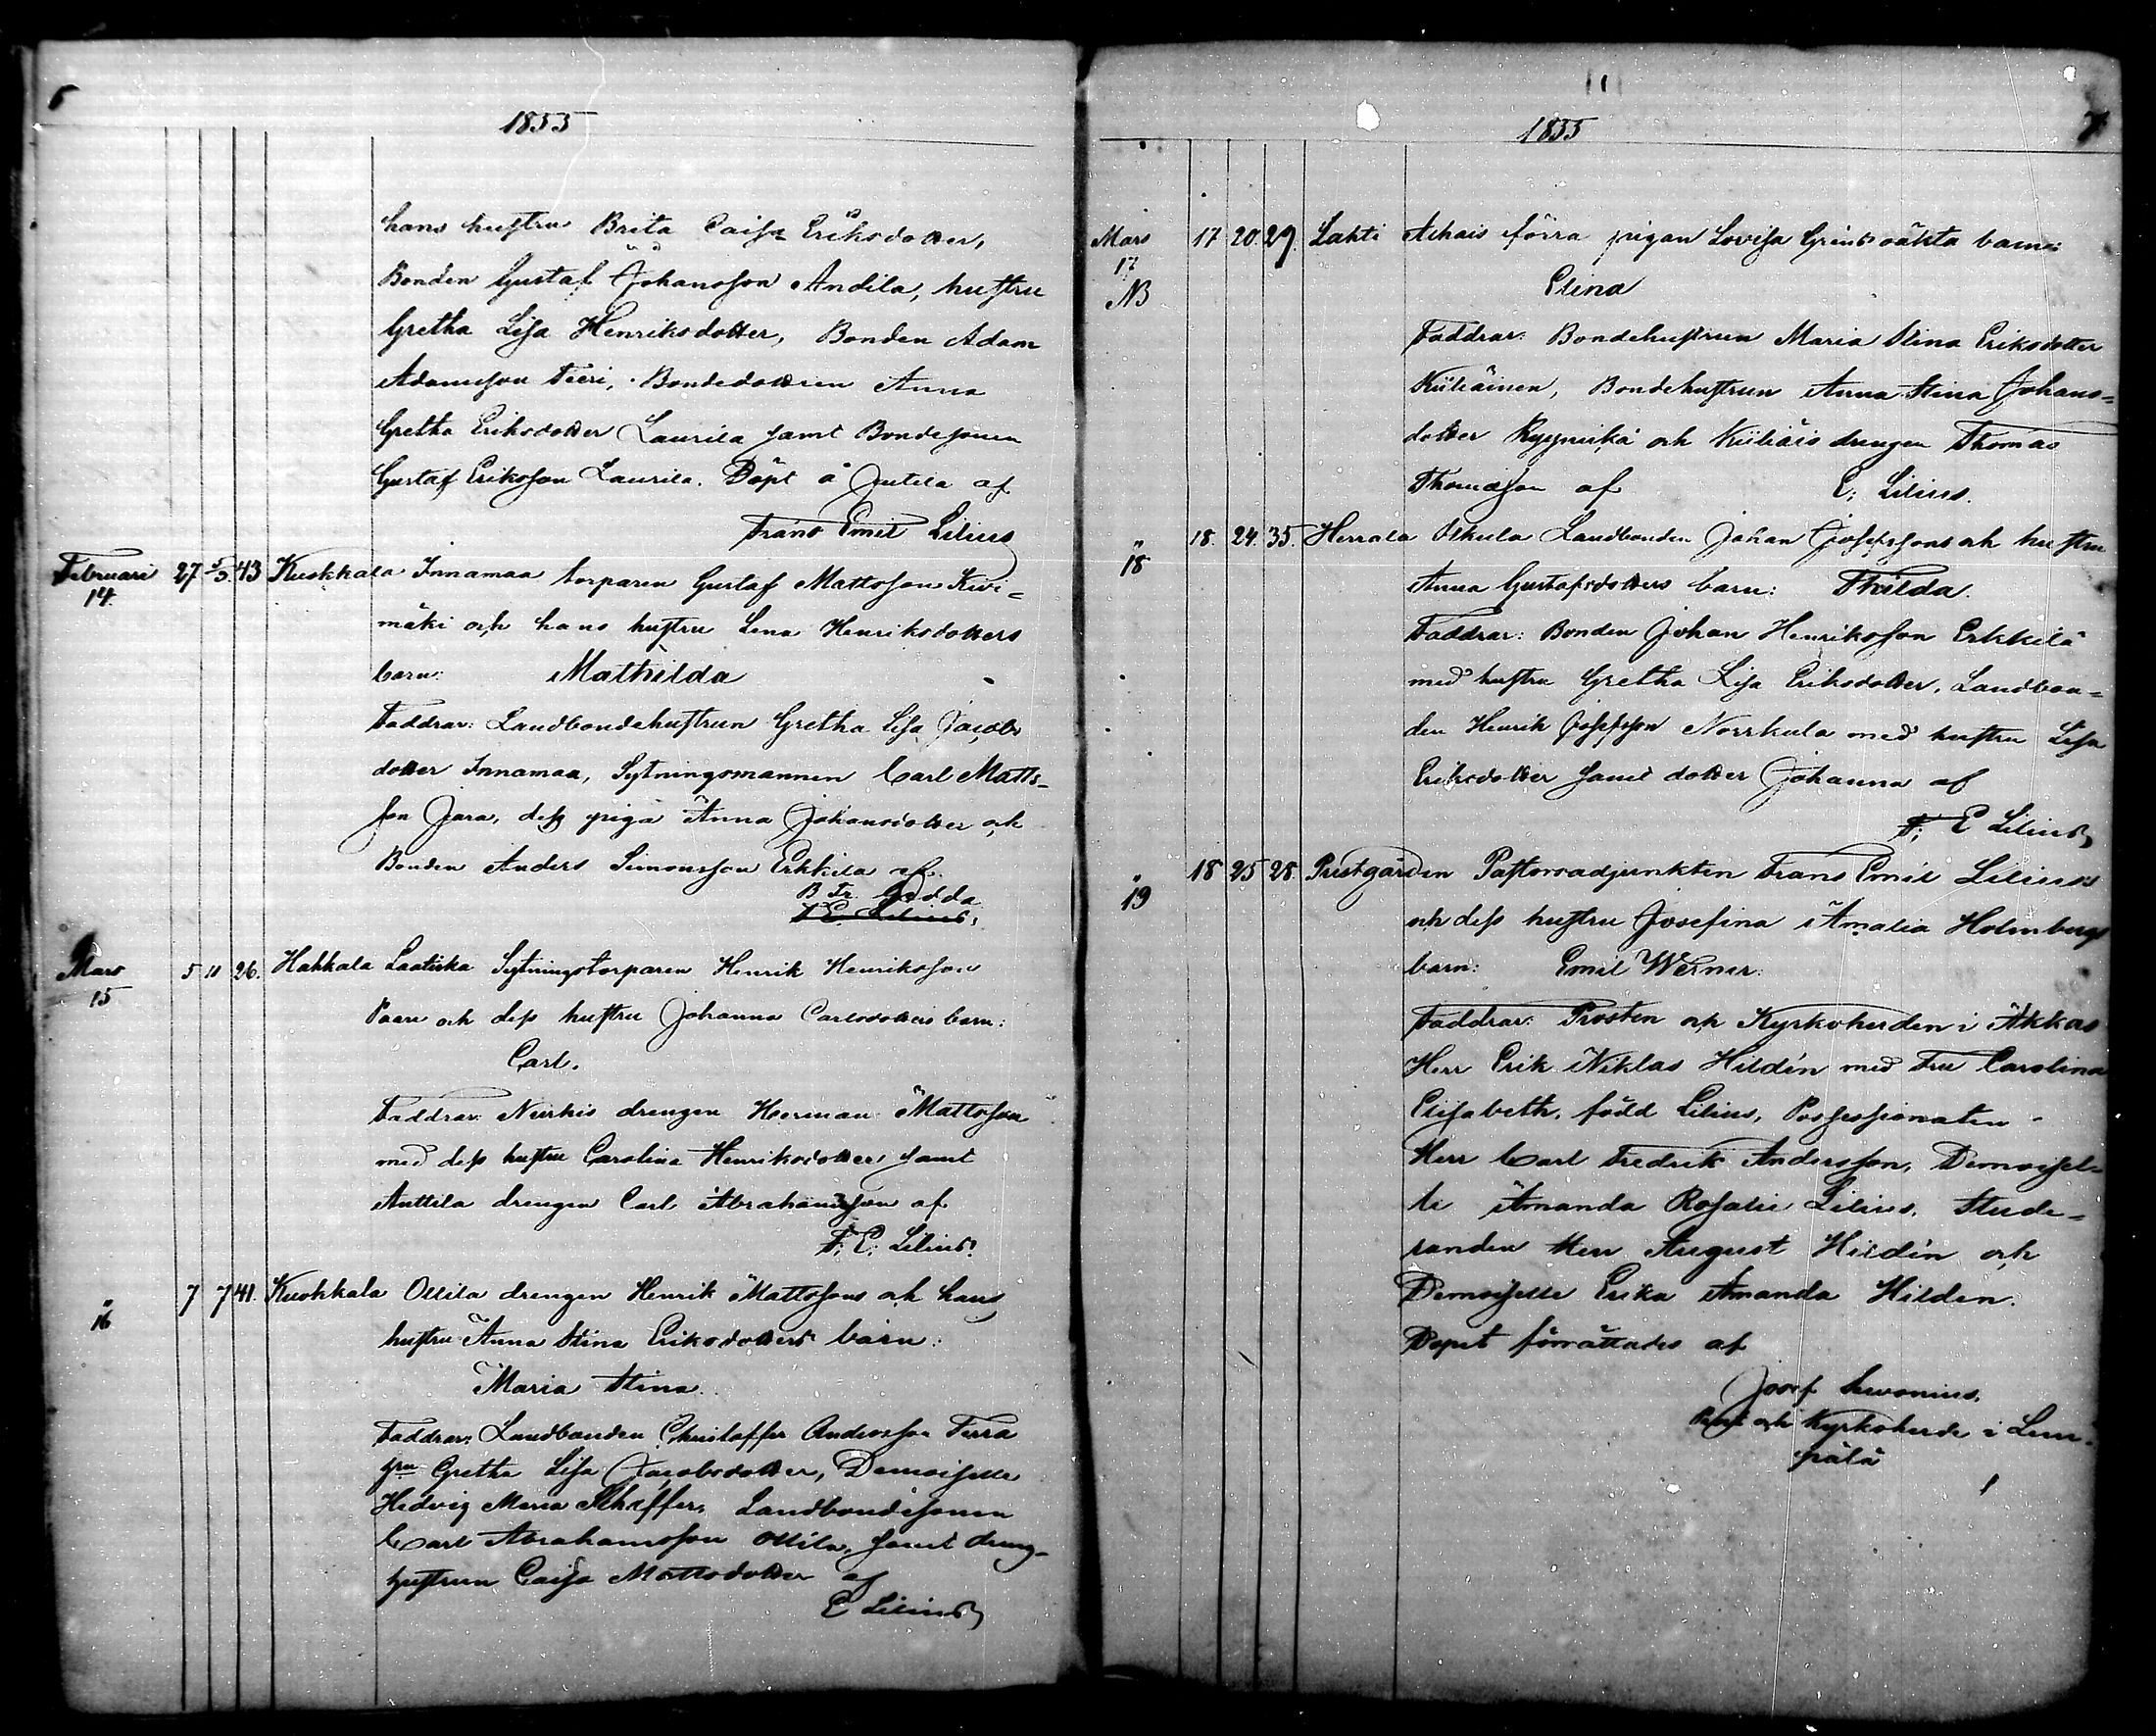 6
1855
hans hustru Brita Caisa Eriksdotter,
Bonden Gustaf Johansson Andila, hustru
Gretha Lisa Henriksdotter, Bonden Adam
Adamsson Fieri, Bondedottren Anna
Gretha Eriksdotter Laurila samt Bondesonen
Gustaf Eriksson Laurila. Döpt å Jutila af
Frans Emil Lilius
Februari 14. 27 5/3. 43 Kuokkala Innamaa torparen Gustaf Mattsson Kivi=
mäki och hans hustru Lena Henriksdotters
barn: Mathilda
Faddrar: Landbondehustrun Gretha Lisa Jacobs
dotter Innamaa, Sytningsmannen Carl Matts-
son Jara, dess piga Anna Johansdotter och
Bonden Anders Simonsson Erkkila af
B Fr. Gadda
F E. Lilius.
Mars 15 5 11 26. Hakkala Laatiska Sytningstorparen Henrik Henriksson
Paan och dess hustru Johanna Carlsdotters barn:
Carl.
Faddrar: Nurkis drengen Herman Mattsson
med dess hustru Carolina Henriksdotter samt
Anttila drengen Carl Abrahamsson af
F. E. Lilius.
" 16 7 7 41. Kuokkala Ollila drengen Henrik Mattssons och hans
hustru Anna Stina Eriksdotters barn:
Maria Stina.
Faddrar: Landbonden Christaffer Andersson Terra
Gretha Lisa Jacobsdotter, Demoiselle
Hedvig Maria Schäffer, Landbondesonen
Carl Abrahamsson Ollila, samt dreng-
hustrun Caisa Mattsdotter af
E Lilius
7
1855
Mars 17 NB 17 20. 29. Lahti Aihais förra pigan Lovisa Grins oäkta barn:
Elina
Faddrar: Bondehustrun Maria Stina Eriksdotter
Kiiliäinen, Bondehustrun Anna Stina Johans=
dotter och Kiiliäis drengen Thomas
Thomasson af E: Lilius.
" 18 18. 24. 35. Herrala Oskula Landbonden Johan Josefssons och hustru
Anna Gustafsdotters barn: Thilda.
Faddrar: Bonden Johan Henriksson Erkkilä
med hustru Gretha Lisa Eriksdotter, Landbon=
den Henrik Josefsson Norrkula med hustru Lisa
Eriksdotter samt dotter Johanna af
F. E Lilius
" 19 18 25 28. Prestgården Pastorsadjunkten Frans Emil Lilius's
och dess hustru Josefina Amalia Holmbergs
barn: Emil Werner.
Faddrar: Prosten och Kyrkoherden i Akkas
Herr Erik Niklas Hildén med Fru Carolina
Elisabeth, född Lilius, Possessionaten
Herr Carl Fredrik Andersson, Demoisel=
le Amanda Rosalie Lilius, Stude=
randen Herr August Hildén och
Demoiselle Erika Amanda Hilden.
Dopet förrättades af
Josef
Prost och Kyrkoherde i Lem-
pälä